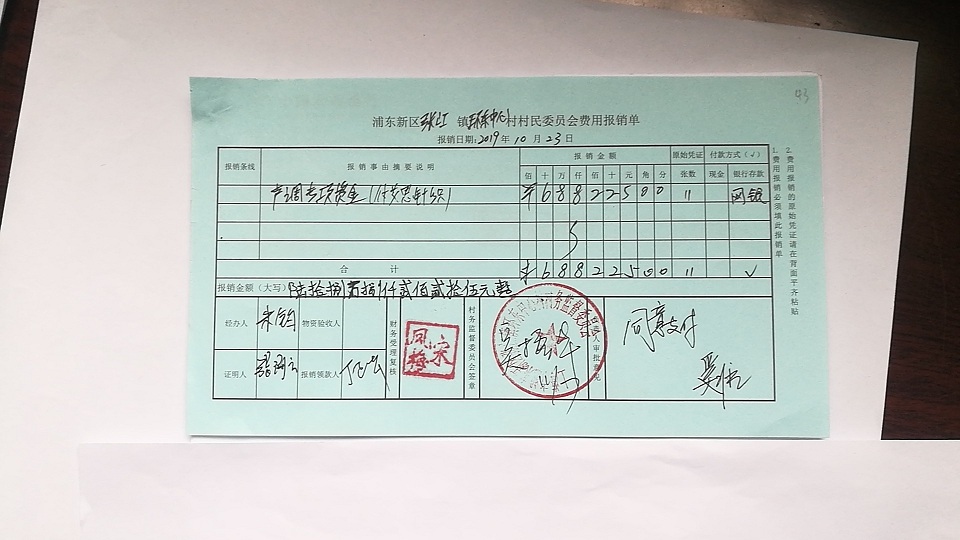 93
浦东新区张江镇环东中心村村民委员会费用报销单
报销日期：2019年10月23日
报销条线 报销事由摘要说明 报销金额 原始凭证 付款方式（√）
佰 十 万 仟 佰 十 元 角 分 张数 现金 银行存款
产调专项资金（付艾思针织） ¥ 6 8 8 2 2 5 0 0 11 网银
合计 ¥ 6 8 8 2 2 5 0 0 11 √
报销金额（大写） 陆拾捌万捌仟贰佰贰拾伍元整
经办人 朱钧 物资验收人 财务受理复核 村务监督委员会签章 负责人审批意见 同意支付
证明人 报销领款人
宋凤梅
1. 费用报销必须填此报销单
2. 费用报销的原始凭证请在背面平齐粘贴